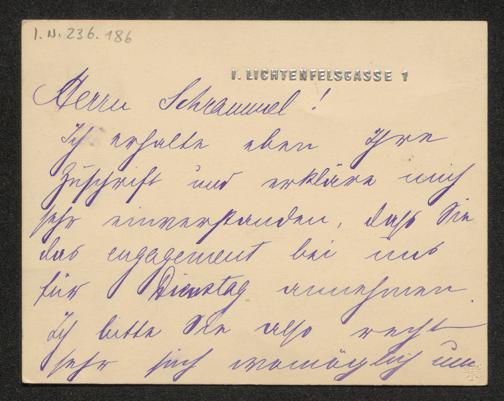 I.N. 236.186
I. LICHTENFELSGASSE 1
Herrn Schrammel!
Ich erhalte eben Ihre
Zuschrift und erkläre mich
sehr einverstanden, daß Sie
das engagement bei uns
für Dienstag annehmen.
Ich bitte Sie also recht
sehr sich womöglich um